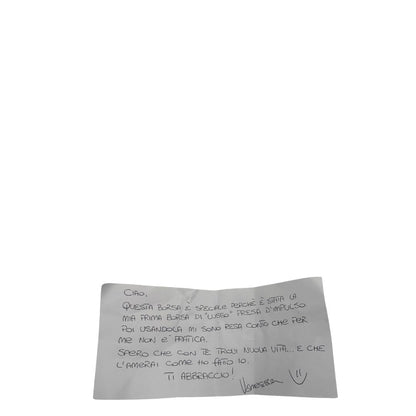 CIAO,
QUESTA BORSA È SPECIALE PERCHÉ È STATA LA
MIA PRIMA BORSA DI "LUSSO" PRESA D'IMPULSO
POI USANDOLA MI SONO RESA CONTO CHE PER
ME NON È PRATICA.
SPERO CHE CON TE TROVI NUOVA VITA... E CHE
L'AMERAI COME HO FATTO IO.
TI ABBRACCIO!
Vanessa